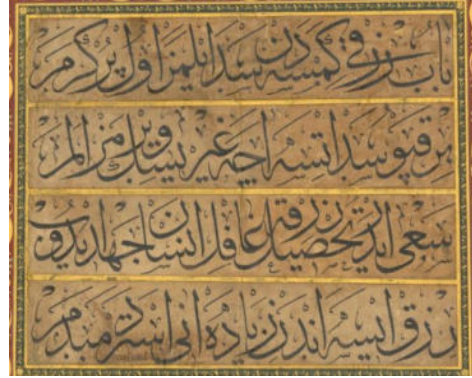 باب رزقی كمسه دن سد ایلمز اول پر كرم
بر قپو سد اتسه اچه غیریسن ویرمز الم
سعی ایدر تحصیل رزقه غافل انسان جهد ایدوب
رزق ایسه اندن زیاده انی استر دمبدم